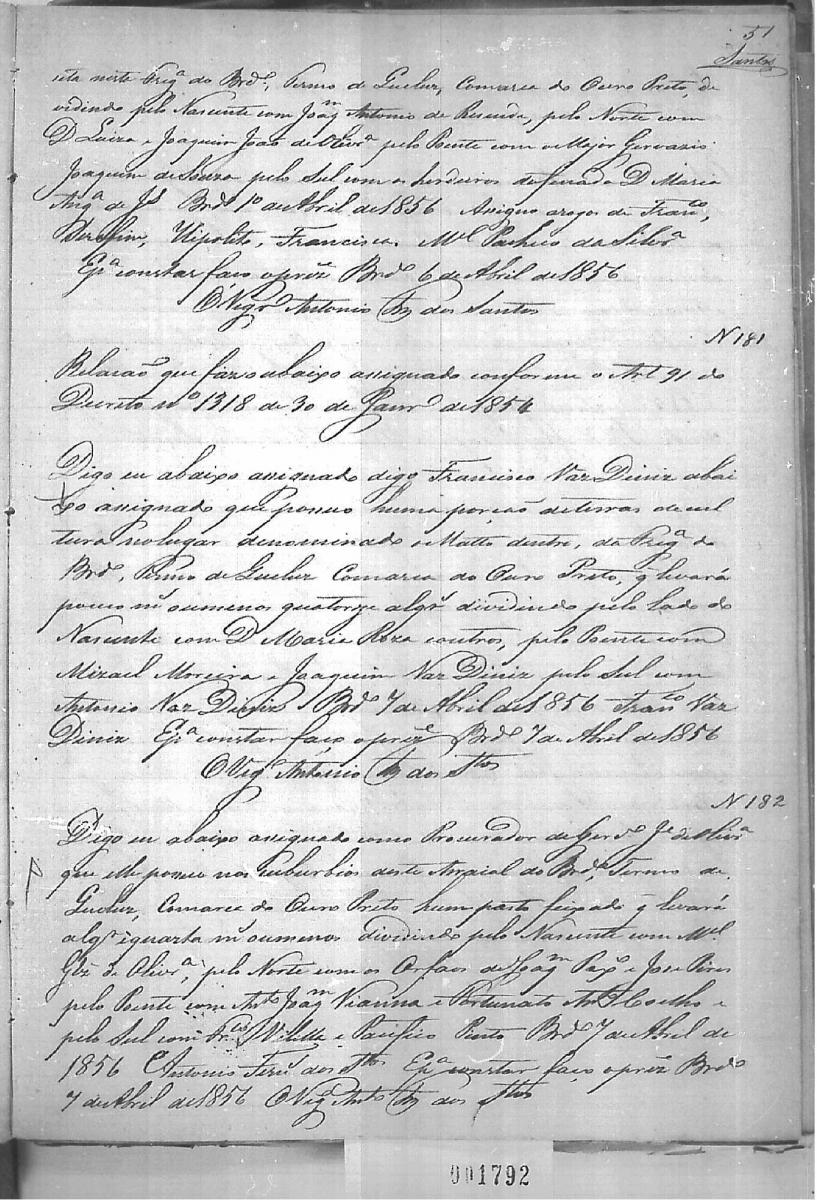 51
Santos
nesta Freg.ª do Brd.º, Termo de Queluz, Comarca do Ouro Preto, de
vidindo pelo Nascente com Joaq.m Antonio de Resende, pelo Norte com
D Luiza e Joaquim João de Olivr.ª pelo Poente com o Major Gervazio
Joaquim de Souza pelo Sul com os herdeiros da finada D Maria
Ang.ª de J.s Brd.º 1º de Abril de 1856 Assigno a rogo de Fran.co,
Serafim, Hipolito, Francisca. M.el Pacheco da Silvr.ª
E p.ª constar faço o prez.e Brd.º 6 de Abril de 1856
O Vigr.º Antonio dos Santos
N 181
Relação que faz o abaixo assignado conforme o Art 91 do
Decreto nº 1318 de 30 de Janr.º de 1854
Digo eu abaixo assignado digo Francisco Vaz Diniz abai
xo assignado que possuo huma porção de terras de cul
tura no lugar denominado o Matto dentro, da Freg.ª do
Brd.º, Termo de Queluz Comarca do Ouro Preto, q̃ levará
pouco m.s ou menos quatorze alqr.s dividindo pelo lado do
Nascente com D Maria Roza e outros, pelo Poente com
Mizael Moreira e Joaquim Vaz Diniz pelo Sul com
Antonio Vaz Diniz Brd.º 7 de Abril de 1856 Fran.co Vaz
Diniz E p.ª constar faço o prez.e Brd.º 7 de Abril de 1856
O Vig.º Antonio dos S.tos
N 182
Digo eu abaixo assignado como Procurador de J.e de Olivr.ª
que elle possue nos suburbios deste Arraial do Brd.º, Termo de
Queluz, Comarca do Ouro Preto hum pasto feixado q̃ levará
alq.r e quarta m.s ou menos dividindo pelo Nascente com M.el
Glz de Olivr.ª, pelo Norte com os Orfaos de Joaq.m e Jose Pires
pelo Poente com Ant.º Joaq.m Vianna e Fortunato Ant.º Coelho e
pelo Sul com Fr.co Villela e Pacifico Pinto Brd.º 7 de Abril de
1856 Antonio Ferr.ª dos S.tos E p.ª constar faço o prez.e Brd.º
7 de Abril de 1856 O Vig.º Ant.º dos S.tos
001792